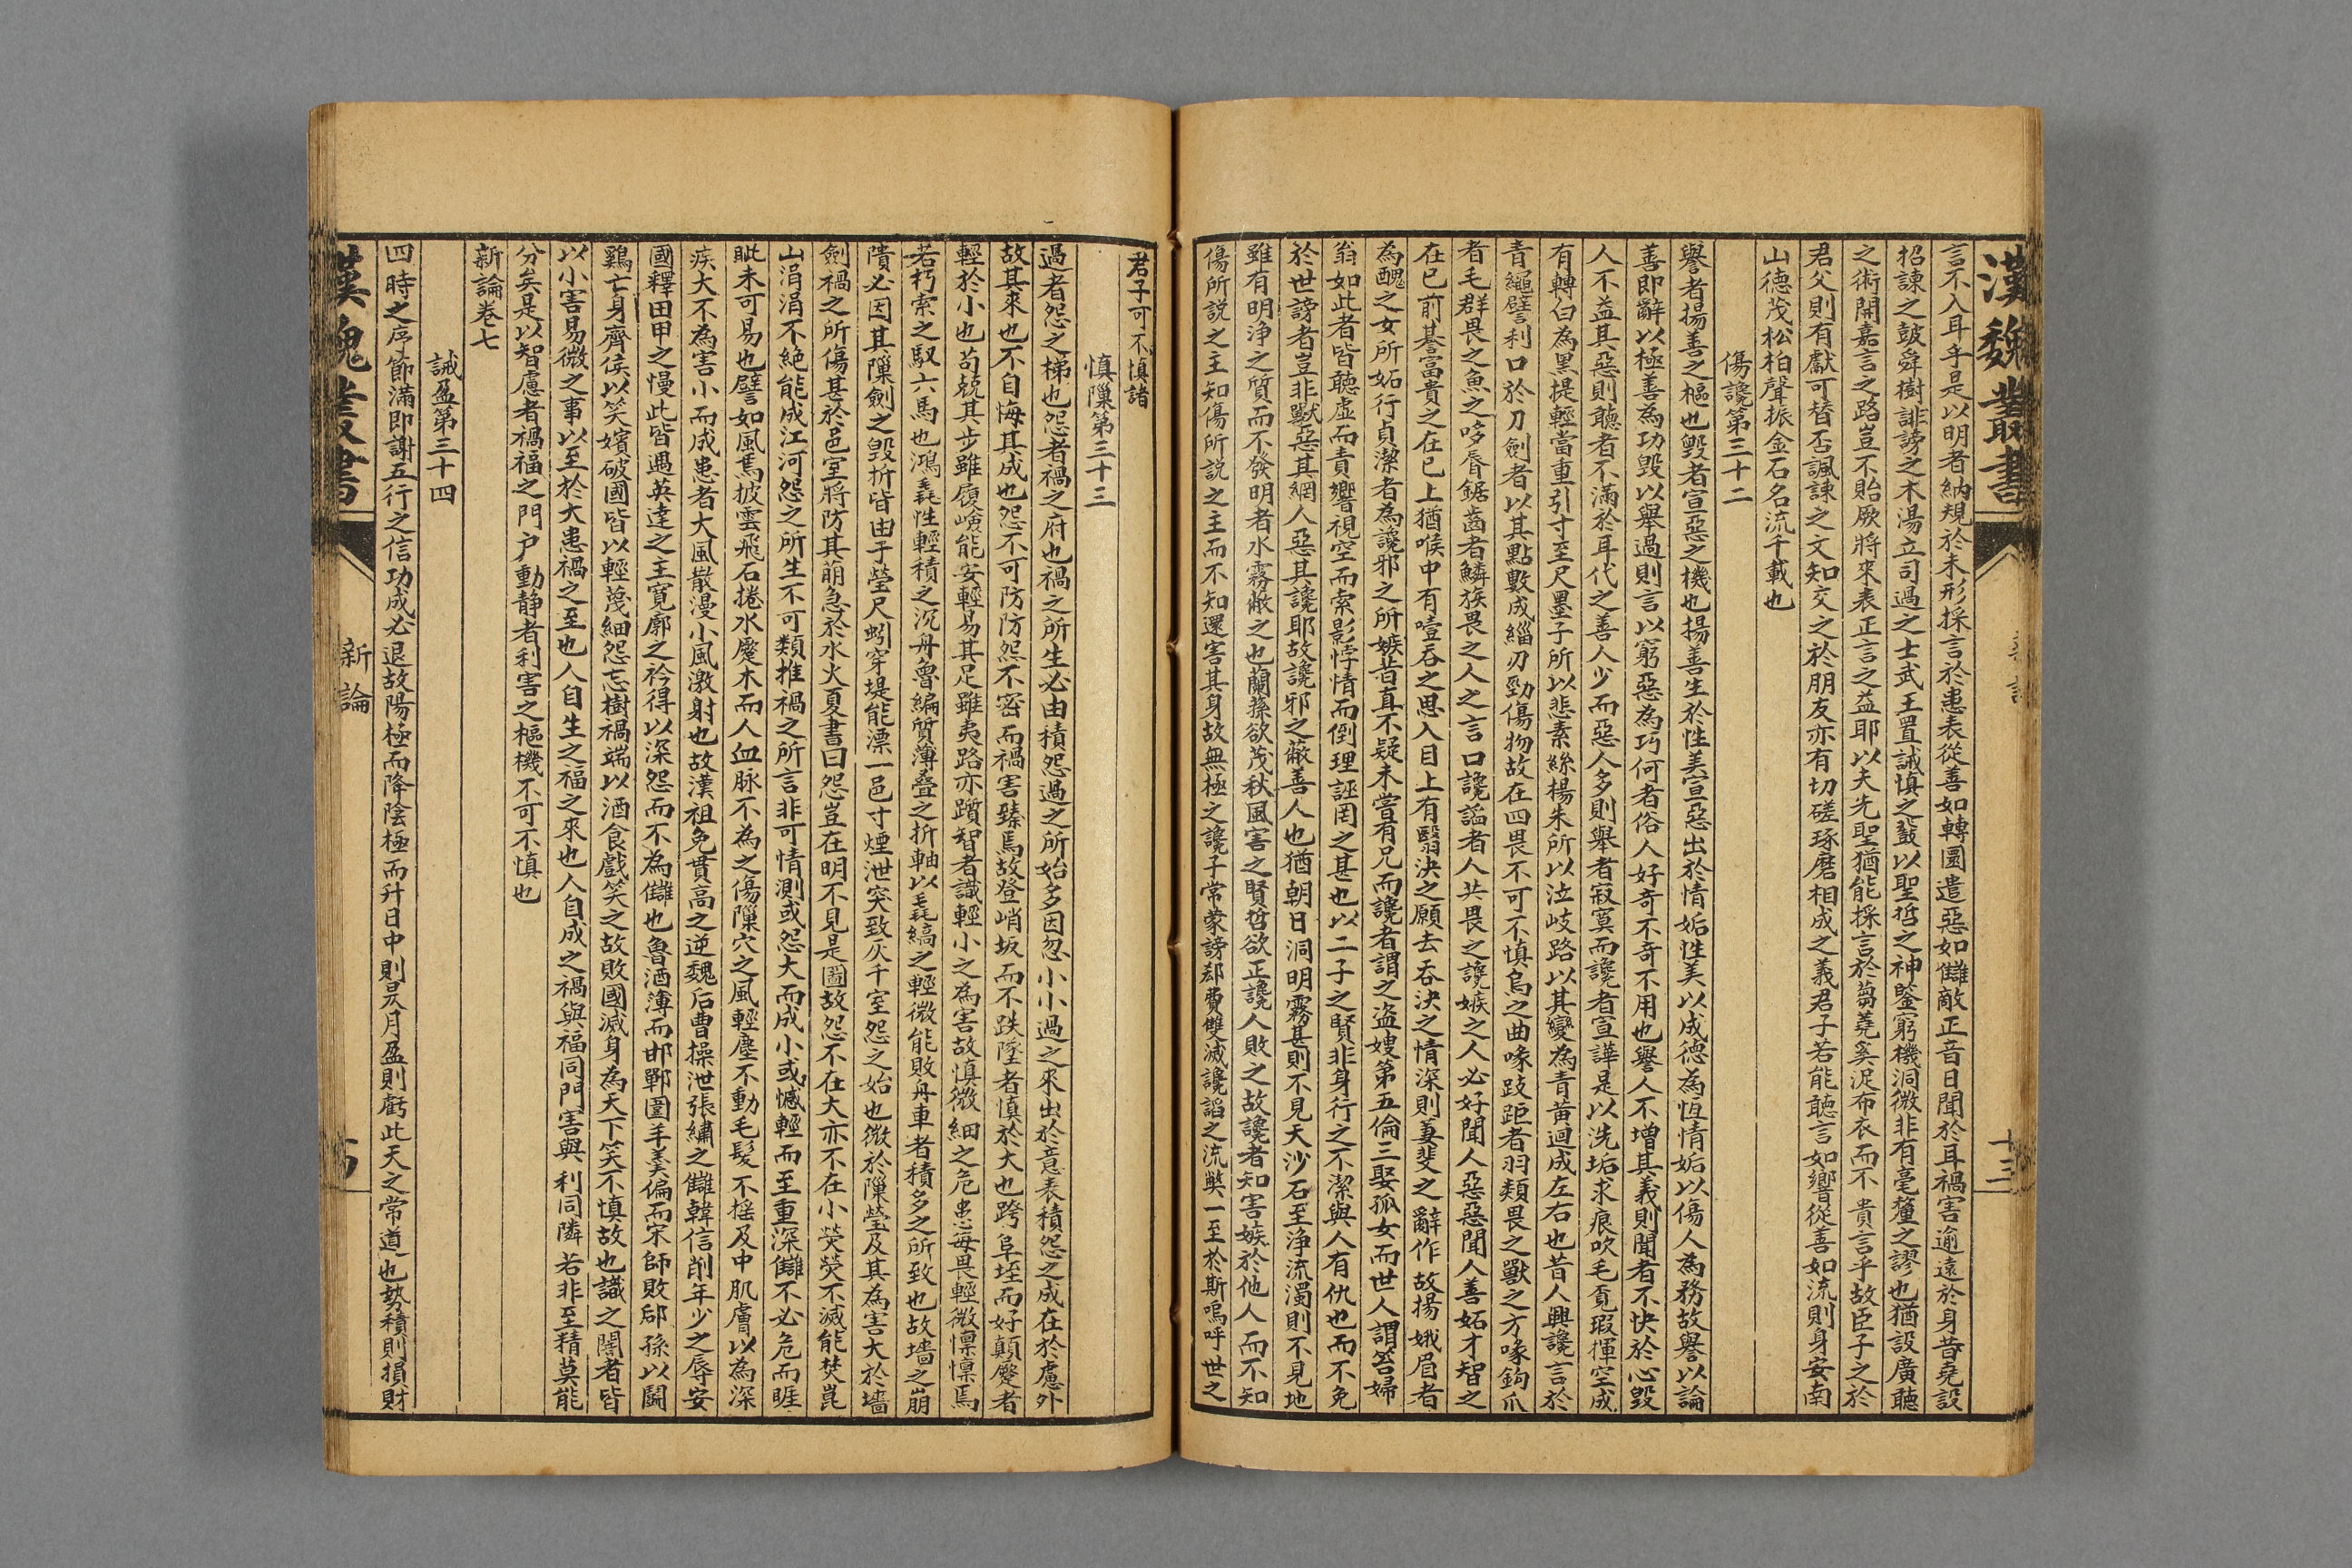 漢魏叢書
十三
言不入耳乎是以明者納規於未形採言於患表從善如轉圜遣惡如讎敵正音日聞於耳禍害逾遠於身昔堯設
招諫之鼓舜樹誹謗之木湯立司過之士武王置誡慎之鼗以聖哲之神鑒窮機洞微非有毫釐之謬也猶設廣聽
之術開嘉言之路豈不貽厥將來表正言之益耶以夫先聖猶能採言於蒭蕘奚況布衣而不貴言乎故臣子之於
君父則有獻可替否諷諫之文知交之於朋友亦有切磋琢磨相成之義君子若能聽言如響從善如流則身安南
山德茂松柏聲振金石名流千載也
傷讒第三十二
譽者揚善之樞也毀者宣惡之機也揚善生於性美宣惡出於情妬性美以成德為恆情妬以傷人為務故譽以論
善即辭以極善為功毀以舉過則言以窮惡為巧何者俗人好奇不奇不用也譽人不增其義則聞者不快於心毀
人不益其惡則聽者不滿於耳代之善人少而惡人多則舉者寂寞而讒者宣譁是以洗垢求痕吹毛覓瑕揮空成
有轉白為黑提輕當重引寸至尺墨子所以悲素絲楊朱所以泣岐路以其變為青黃迴成左右也昔人興讒言於
青蠅譬利口於刀劍者以其點數成緇刃勁傷物故在四畏不可不慎鳥之曲喙跂距者羽類畏之獸之方喙鉤爪
者毛群畏之魚之哆脣鋸齒者鱗族畏之人之言口讒謟者人共畏之讒嫉之人必好聞人惡惡聞人善妬才智之
在已前甚富貴之在已上猶喉中有噎吞之思入目上有翳決之願去吞決之情深則萋斐之辭作故揚娥眉者
為醜之女所妬行貞潔者為讒邪之所嫉昔直不疑未嘗有兄而讒者謂之盜嫂第五倫三娶孤女而世人謂笞婦
翁如此者皆聽虛而責響視空而索影悖情而倒理誣罔之甚也以二子之賢非身行之不潔與人有仇也而不免
於世謗者豈非獸惡其網人惡其讒耶故讒邪之蔽善人也猶朝日洞明霧甚則不見天沙石至浄流濁則不見地
雖有明浄之質而不發明者水霧蔽之也蘭蓀欲茂秋風害之賢哲欲正讒人敗之故讒者知害嫉於他人而不知
傷所說之主知傷所說之主而不知還害其身故無極之讒子常蒙謗郄費雙滅讒謟之流獘一至於斯嗚呼世之
君子可不慎諸
慎隟第三十三
過者怨之梯也怨者禍之府也禍之所生必由積怨過之所始多因忽小小過之來出於意表積怨之成在於慮外
故其來也不自悔其成也怨不可防防怨不密而禍害臻焉故登峭坂而不跌墜者慎於大也跨阜垤而好顛躄者
輕於小也苟兢其步雖履嶮能安輕易其足雖夷路亦躓智者識輕小之為害故慎微細之危患每畏輕微懍懍焉
若朽索之馭六馬也鴻毳性輕積之沉舟魯編質薄疊之折軸以毳縞之輕微能敗舟車者積多之所致也故墻之崩
隤必因其隟劍之毀折皆由于瑩尺蚓穿堤能漂一邑寸煙泄突致灰千室怨之始也微於隟瑩及其為害大於墻
劍禍之所傷甚於邑室將防其萠急於水火夏書曰怨豈在明不見是圖故怨不在大亦不在小熒熒不滅能焚崑
山涓涓不絶能成江河怨之所生不可類推禍之所言非可情測或怨大而成小或憾輕而至重深讎不必危而睚
眦未可易也譬如風焉披雲飛石捲水蹙木而人血脉不為之傷隟穴之風輕塵不動毛髮不摇及中肌膚以為深
疾大不為害小而成患者大風散漫小風激射也故漢祖免貫高之逆魏后曹操泄張繡之讎韓信削年少之辱安
國釋田甲之慢此皆遇英達之主寛廓之衿得以深怨而不為讎也魯酒薄而邯鄲圍羊羹偏而宋師敗郈孫以鬬
鷄亡身齊侯以笑嬪破國皆以輕蔑細怨忘樹禍端以酒食戲笑之故敗國滅身為天下笑不慎故也識之闇者皆
以小害易微之事以至於大患禍之至也人自生之福之來也人自成之禍與福同門害與利同隣若非至精莫能
分矣是以智慮者禍福之門户動靜者利害之樞機不可不慎也
新論卷七
誡盈第三十四
四時之序節滿即謝五行之信功成必退故陽極而降陰極而升日中則昃月盈則虧此天之常道也勢積則損財
漢魏叢書
新論